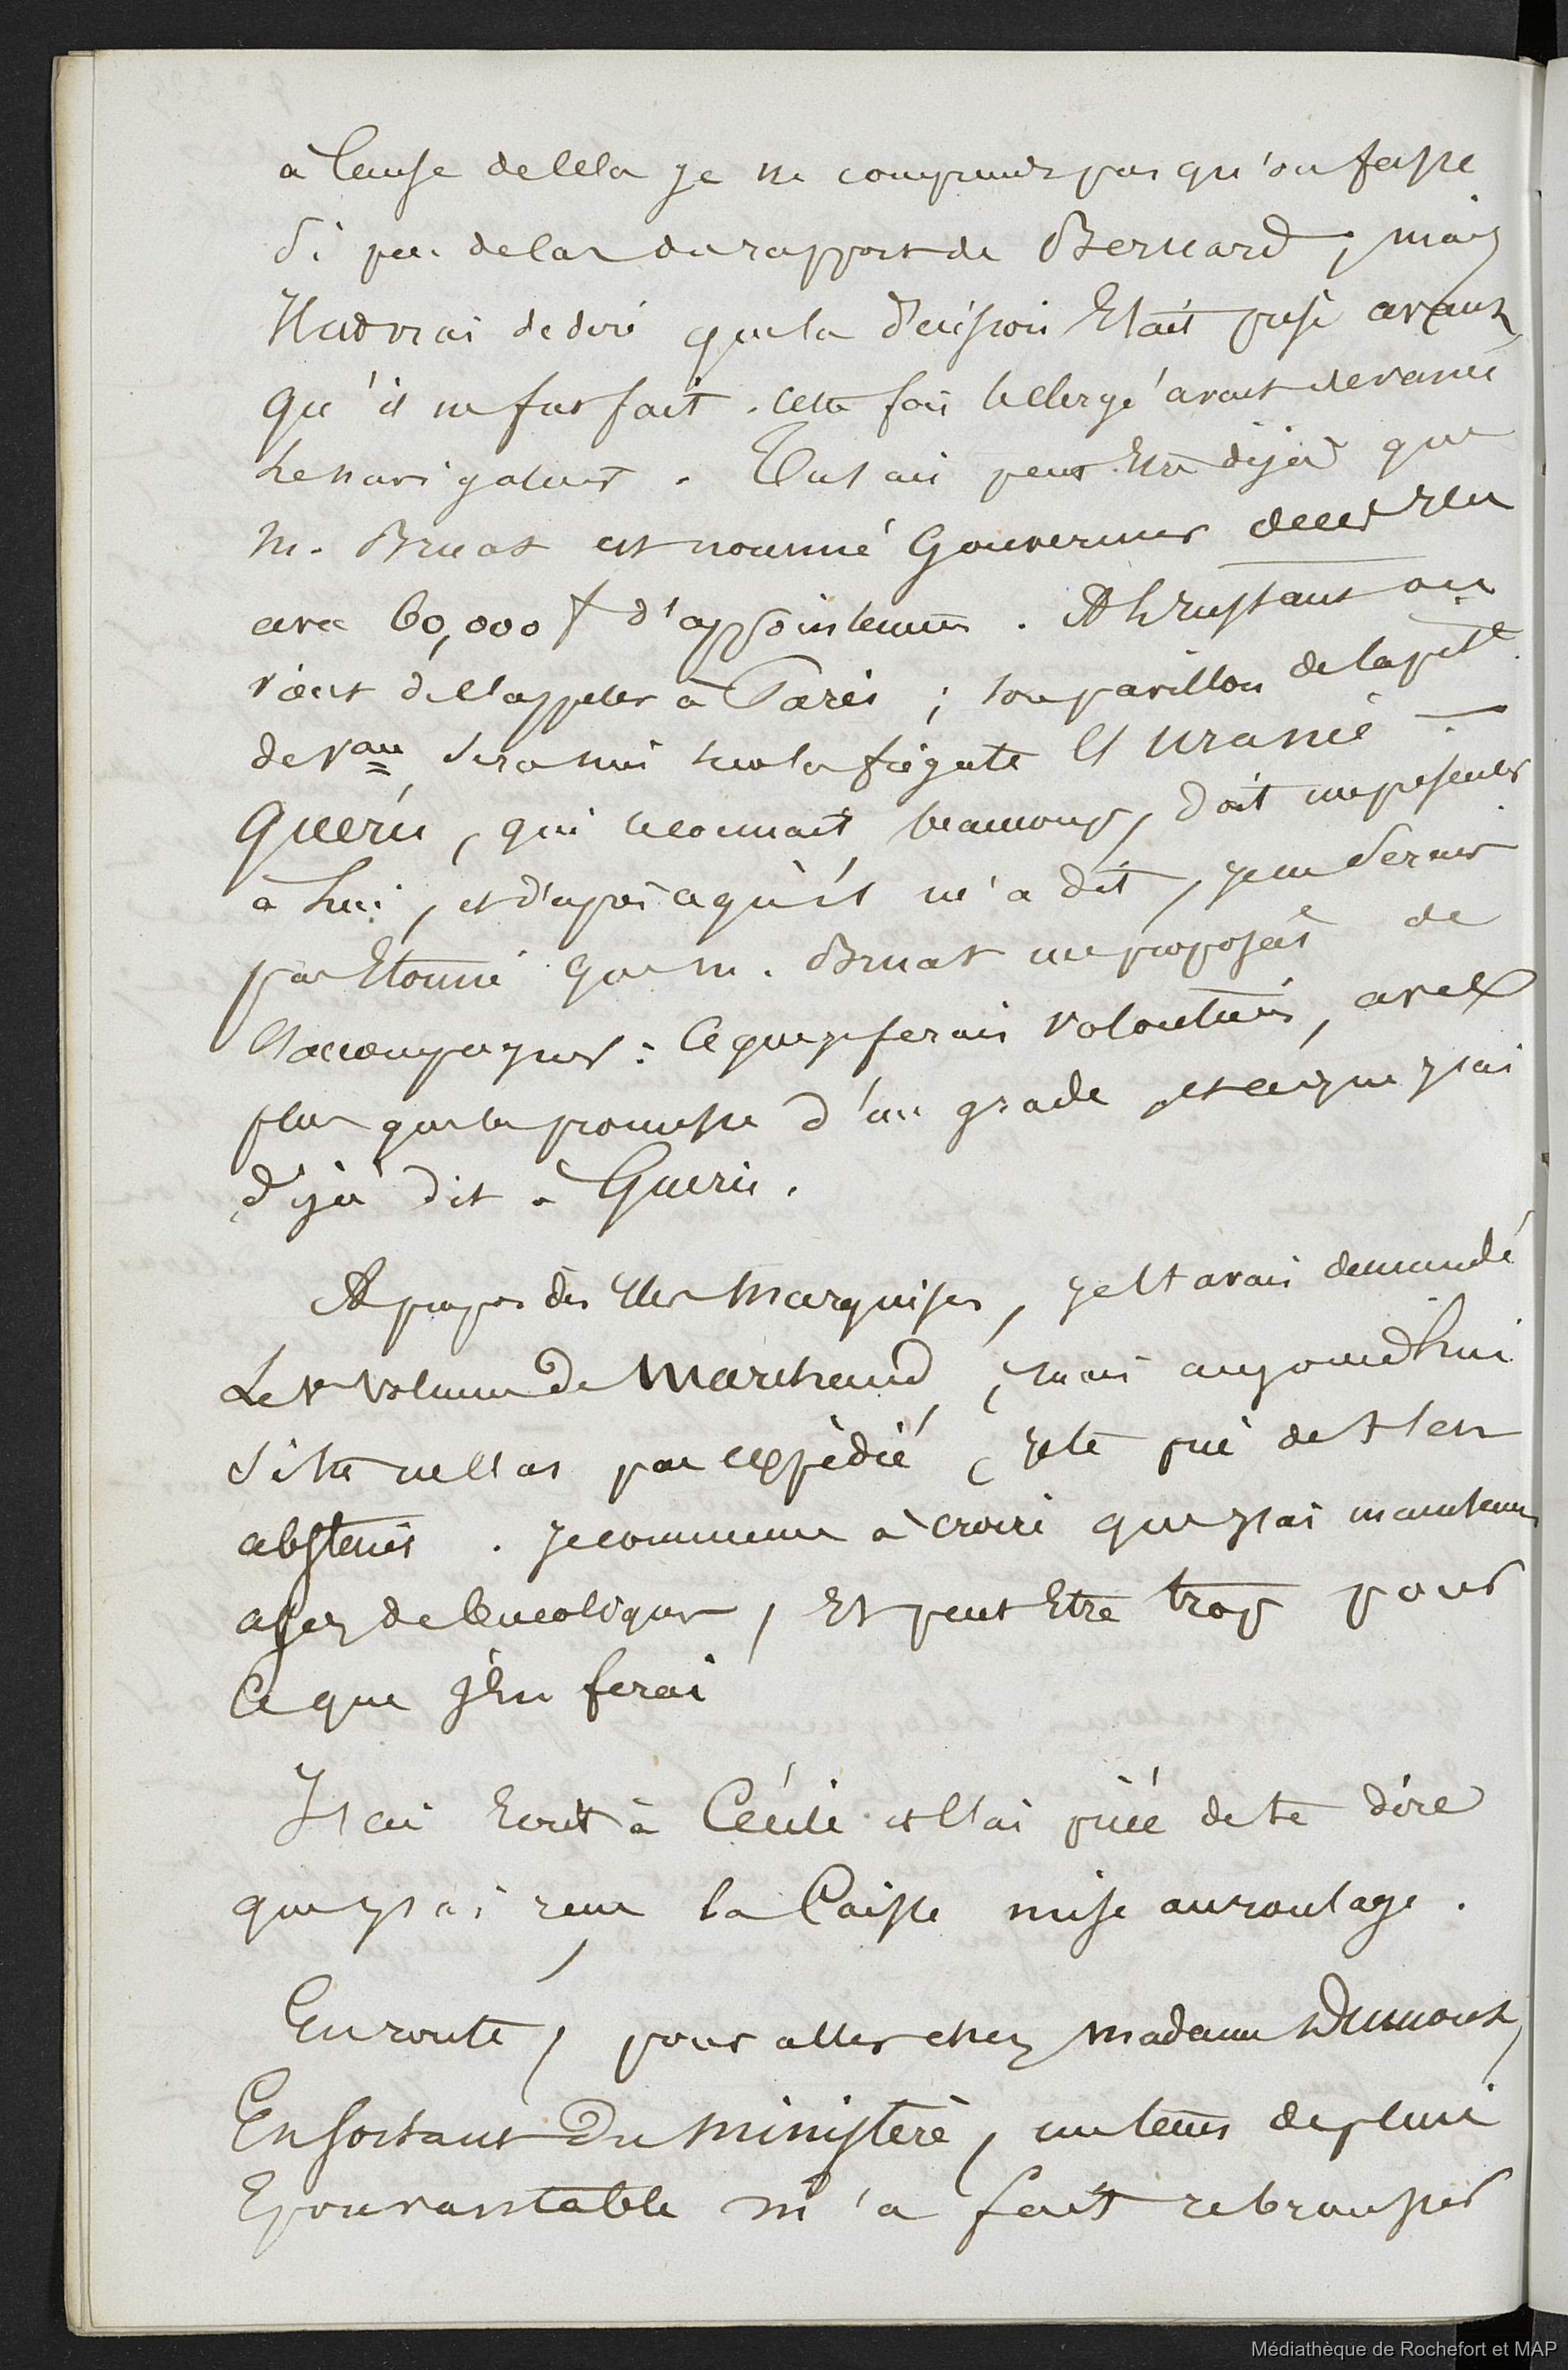 à Cause de Cela je ne comprends pas qu'on fasse
si peu de cas du rapport de Bernard ; mais
Il est vrai de dire que la décision Etait prise avant
qu'il ne fut fait . Cette fois le clergé avait devancé
les navigateurs . Tu sais peut Etre déjà que
M. Bruat est nommé Gouverneur
avec 60,000 f d'appointements . A l'instant on
vient de l'appeler à Paris ; son pavillon de capit.e
de v.au sera mis sur la frégate l'Uranie —
Guérin , qui le connait beaucoup , doit me présenter
à lui , et d'après ce qu'il m'a dit , je ne serais
pas Etonné que M. Bruat me proposât de
l'accompagner : Ce que je ferais volontiers , avec
plus que la promesse d'un grade , et ce que j'ai
déjà dit à Guérin .
A propos des Iles Marquises , je t'avais demandé
Le V volume de Marchand , mais aujourd'hui
si tu ne l'as pas expédié , je te prie de t'en
abstenir . Je commence à croire que j'ai maintenant
assez de bucoliques , Et peut Etre trop pour
Ce que j'En ferai
J'ai Ecrit à Cécile et l'ai priée de te dire
que j'ai reçu la Caisse mise au roulage .
En route , pour aller chez Madame Dumont ,
En sortant Du Ministère , un tems de pluie
Epouvantable m'a fait rebrousser
Médiathèque de Rochefort et MAP